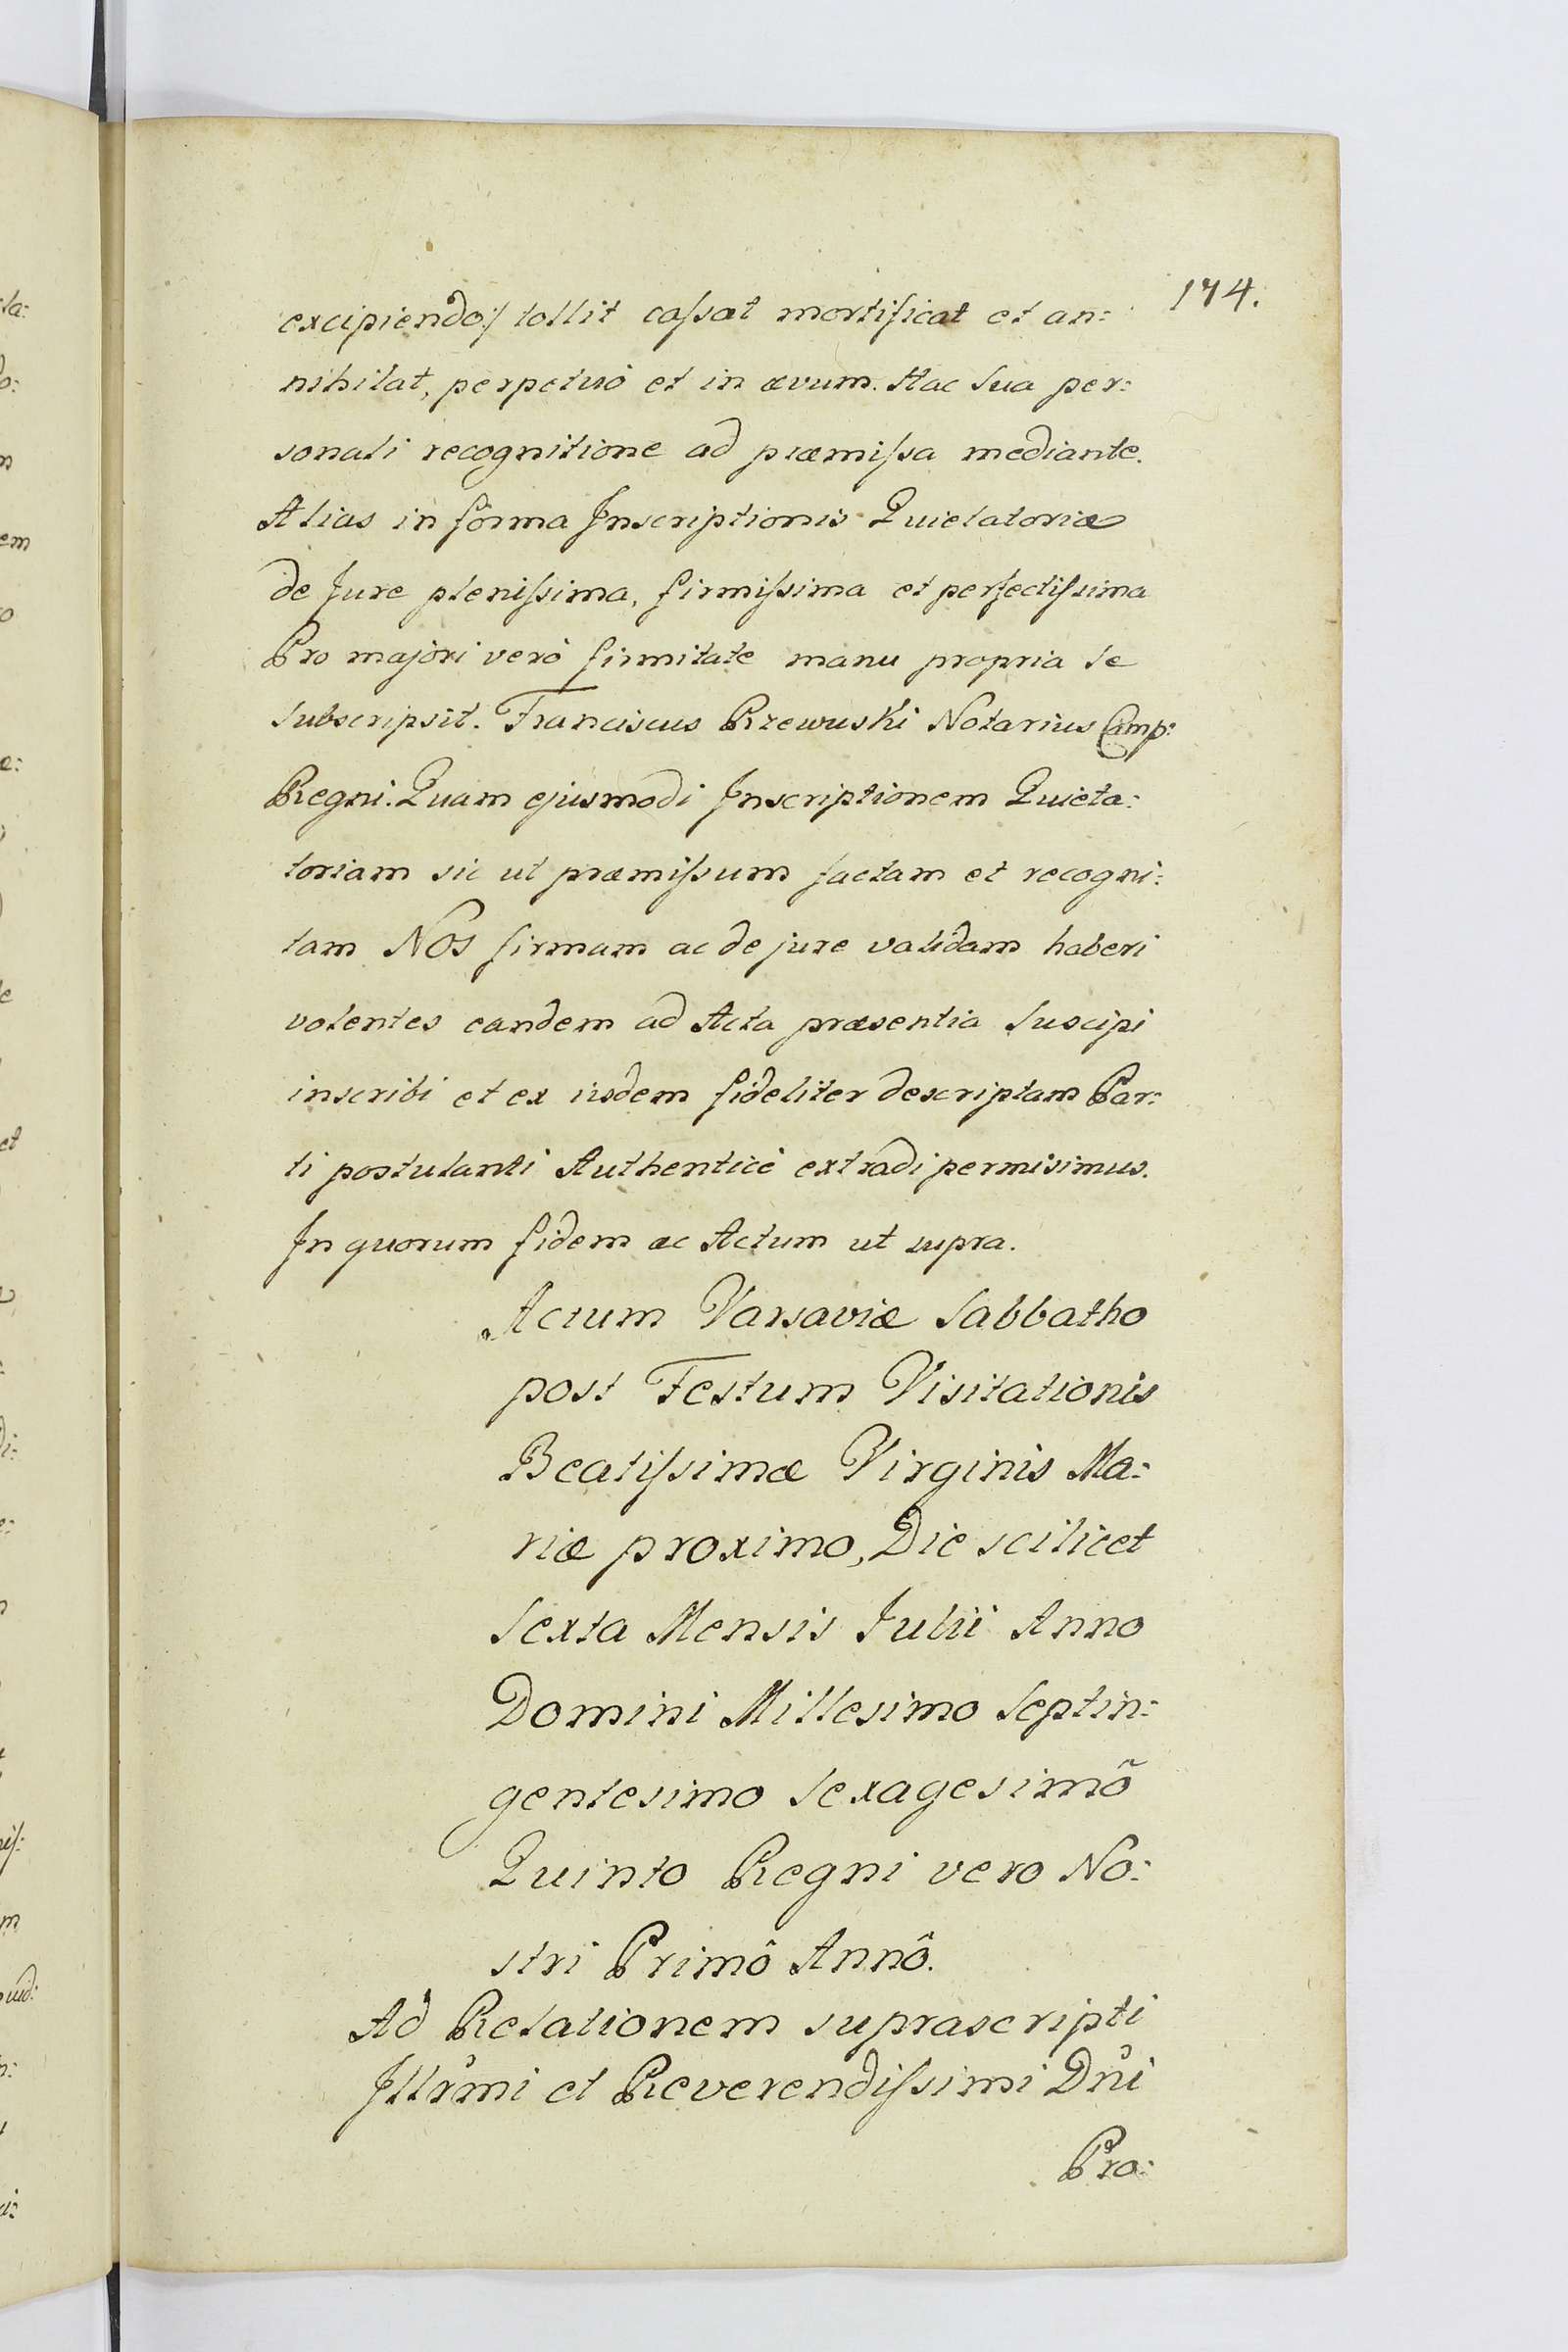 174.
excipiendo:/ tollit caſsat mortificat et an:
nihilat, perpetuò et in ævum. Hac Sua per:
sonali recognitione ad præmiſsa mediante.
Alias in forma Inscriptionis Quietatoriæ
de Jure pleniſsima, firmiſsima et perfectiſsima
Pro majori verò firmitate manu propria Se
Subscripsit. Franciscus Rzewuski Notarius Camp:
Regni. Quam ejusmodi Inscriptionem Quieta:
toriam sic ut præmiſsum factam et recogni:
tam NOS firmam ac de jure validam haberi
volentes eandem ad Acta præsentia Suscipi
inscribi et ex iisdem fideliter descriptam Par:
ti postulanti Authenticè extradi permisimus.
In quorum fidem ac Actum ut supra.
Actum Varsaviæ Sabbatho
post Festum Visitationis
Beatiſsimæ Virginis Ma:
riæ proximo, Die scilicet
Sexta Mensis Julii Anno
Domini Millesimo Septin:
gentesimo Sexagesimô
Quinto Regni vero No:
stri Primô Annô.
Ad Relationem suprascripti
Illrmi et Reverendiſsimi Dni
Pro: